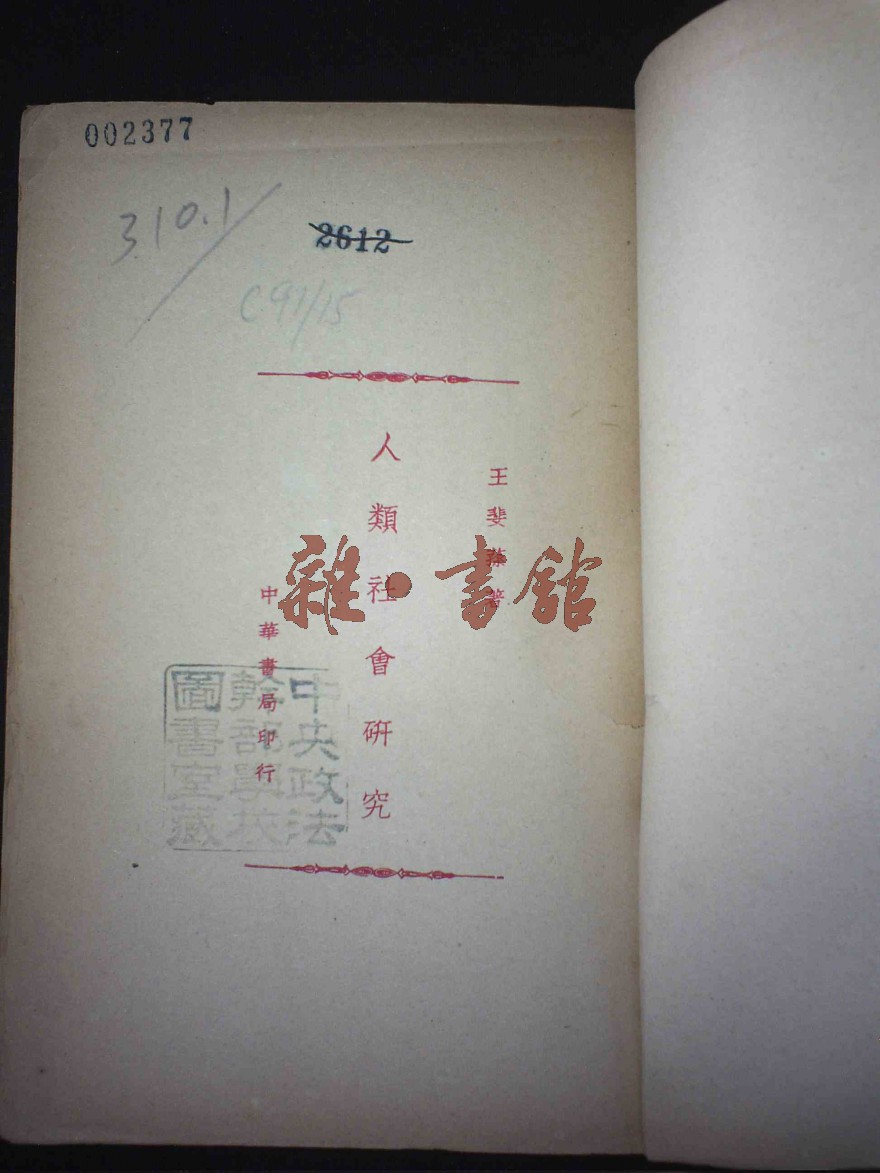 002377
310.1
2612
C91/15
王斐蓀著
人類社會研究
中華書局印行
雜·書館
中央政法
幹部學校
圖書室藏